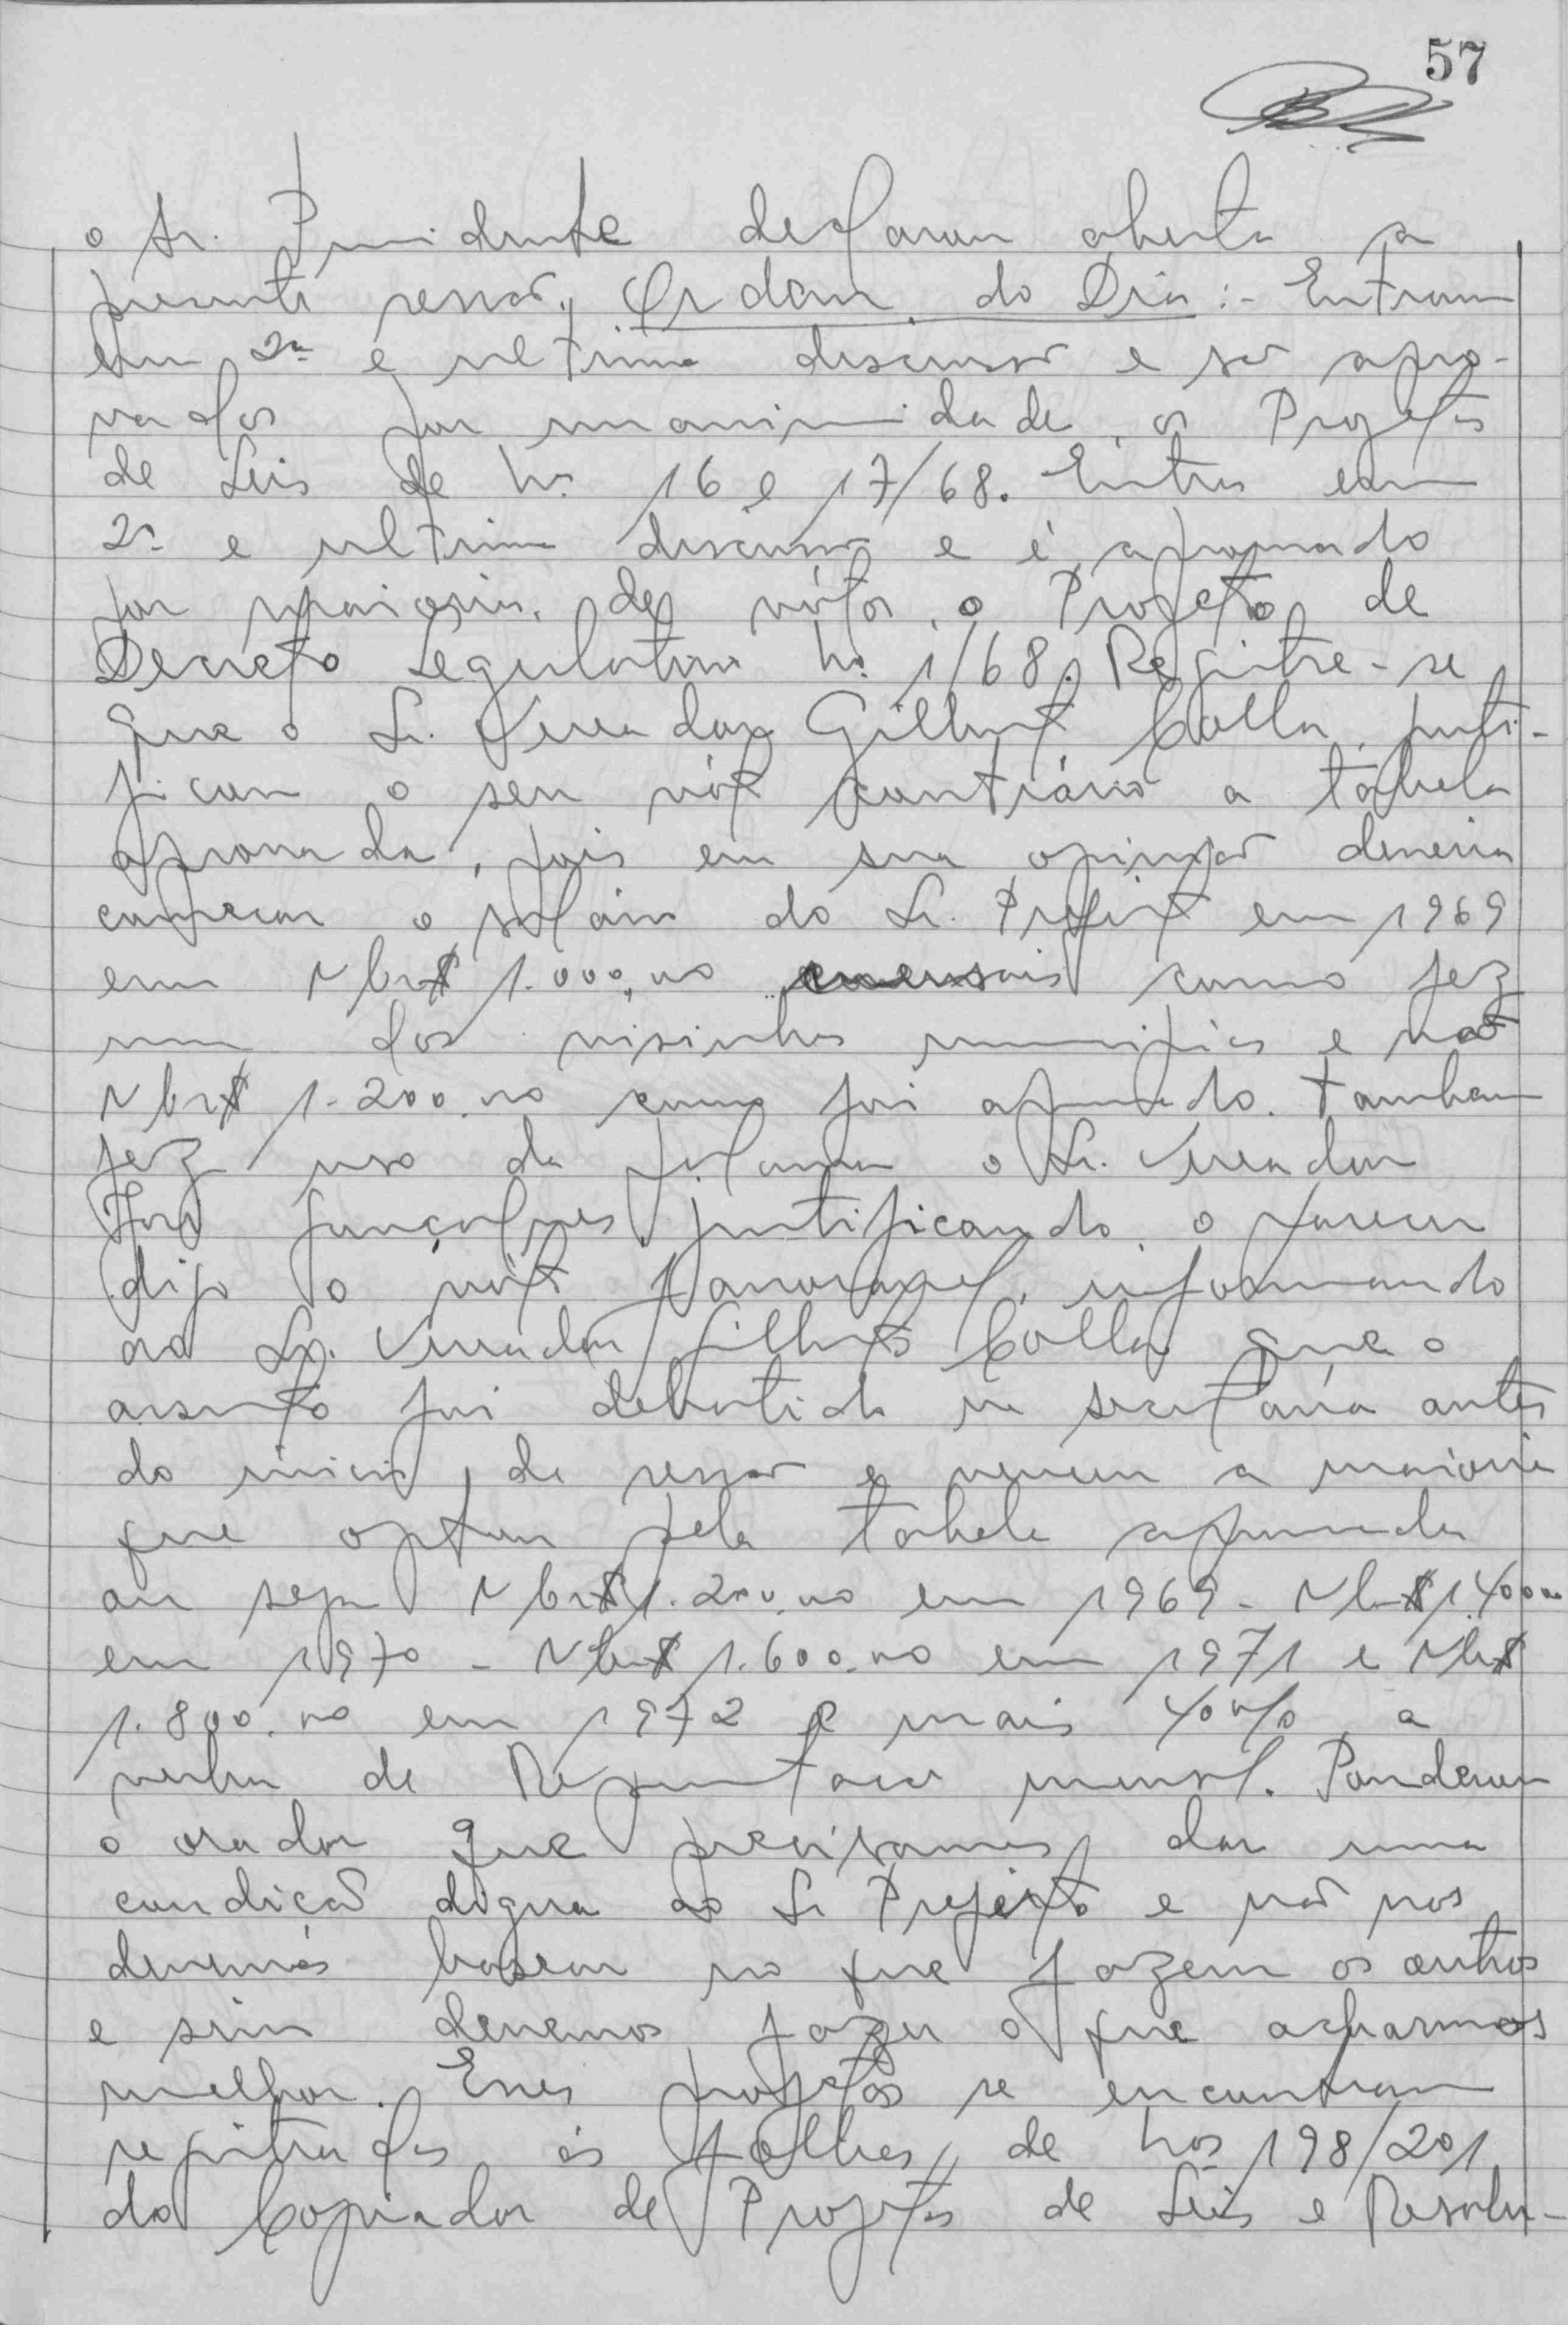 57
o Sr. Presidente declarou aberta a
presente sessão, Ordem do Dia:- Entram
em 2ª e ultima discussão e são apro-
vados por unanimidade, os Projetos
de Leis de nº 16 e 17/68. Entra em
2ª e ultima discussão e é aprovado
por maioria, de vótos, o Projeto de
Decreto Legislativo nº 1/68. Registre-se
que o Sr. Vereador Gilberto Colla, justi-
ficou o seu vóto contrário a tabela
aprovada, pois em sua opinião deveria
começar o salário do Sr. Prefeito em 1969
em NCr$ 1.000,00 mensais como fez
um dos visinhos municípios e não
NCr$ 1.200,00 como foi aprovado. Tambem
fez uso da palavra o Sr. Vereador
José Gonçalves, justificando, o parecer
digo o vóto favorável, informando
ao Sr. Vereador Gilberto Colla que o
assunto foi debatido na secretaria antes
do inicio, da sessão e venceu a maioria
que optou pela tabela aprovada
ou seja NCr$ 1.200,00 em 1969 - NCr$ 1.400,00
em 1970 - NCr$ 1.600,00 em 1971 e NCr$
1.800,00 em 1972 e mais 40%, a
verba de Representação mensal. Ponderou
o orador que precisamos, dar uma
condição digna ao Sr Prefeito e não nos
devemos basear no que fazem os outros
e sim devemos fazer o que acharmos
melhor. Esses projetos se encontram
registrados ás folhas, de nºs 198/201
do Copiador de Projetos de Leis e Resolu-